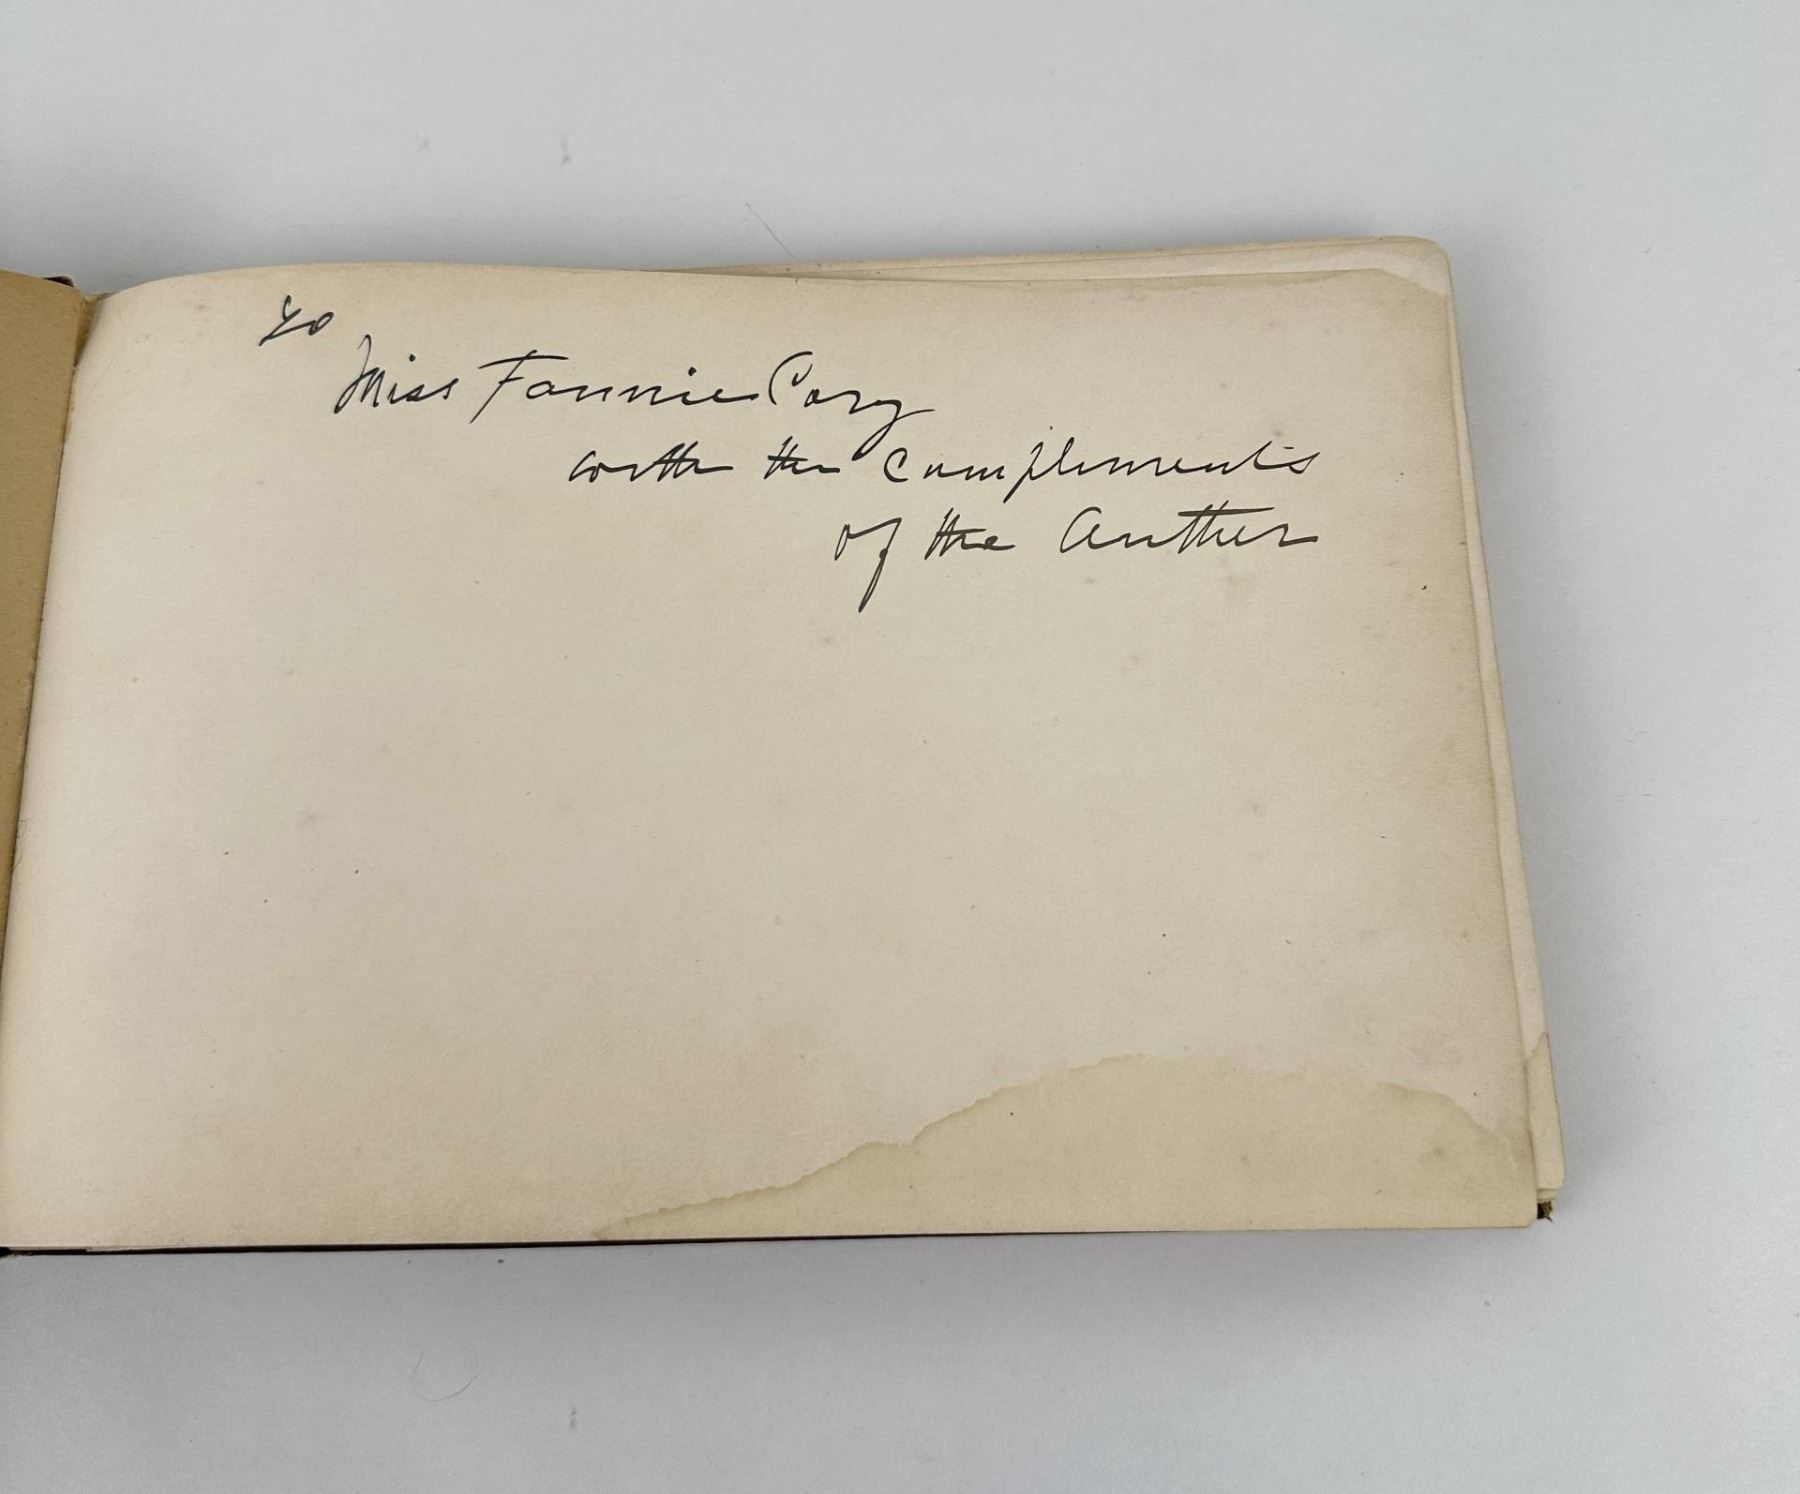 To
Miss Fannie Cory
with the compliments
of the Author